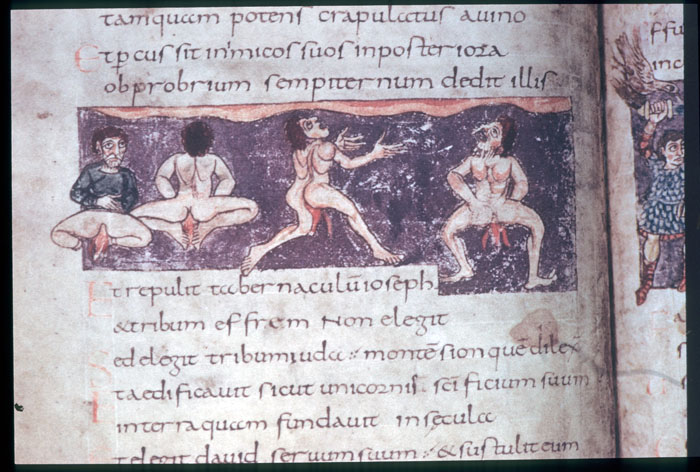 tamquam potens crapulatus auino
Et percussit inimicos suos inposteriora
obprobrium sempiternum dedit illis
Et repulit tabernaculū ioseph
& tribum effrem Non elegit
ed elegit tribum iuda montē sion quē dilex
Et aedificauit sicut unicornis sci ficium suum
interra quam fundauit in secula
telegit dauid seruum suum & sustulit eum
ffu
inc